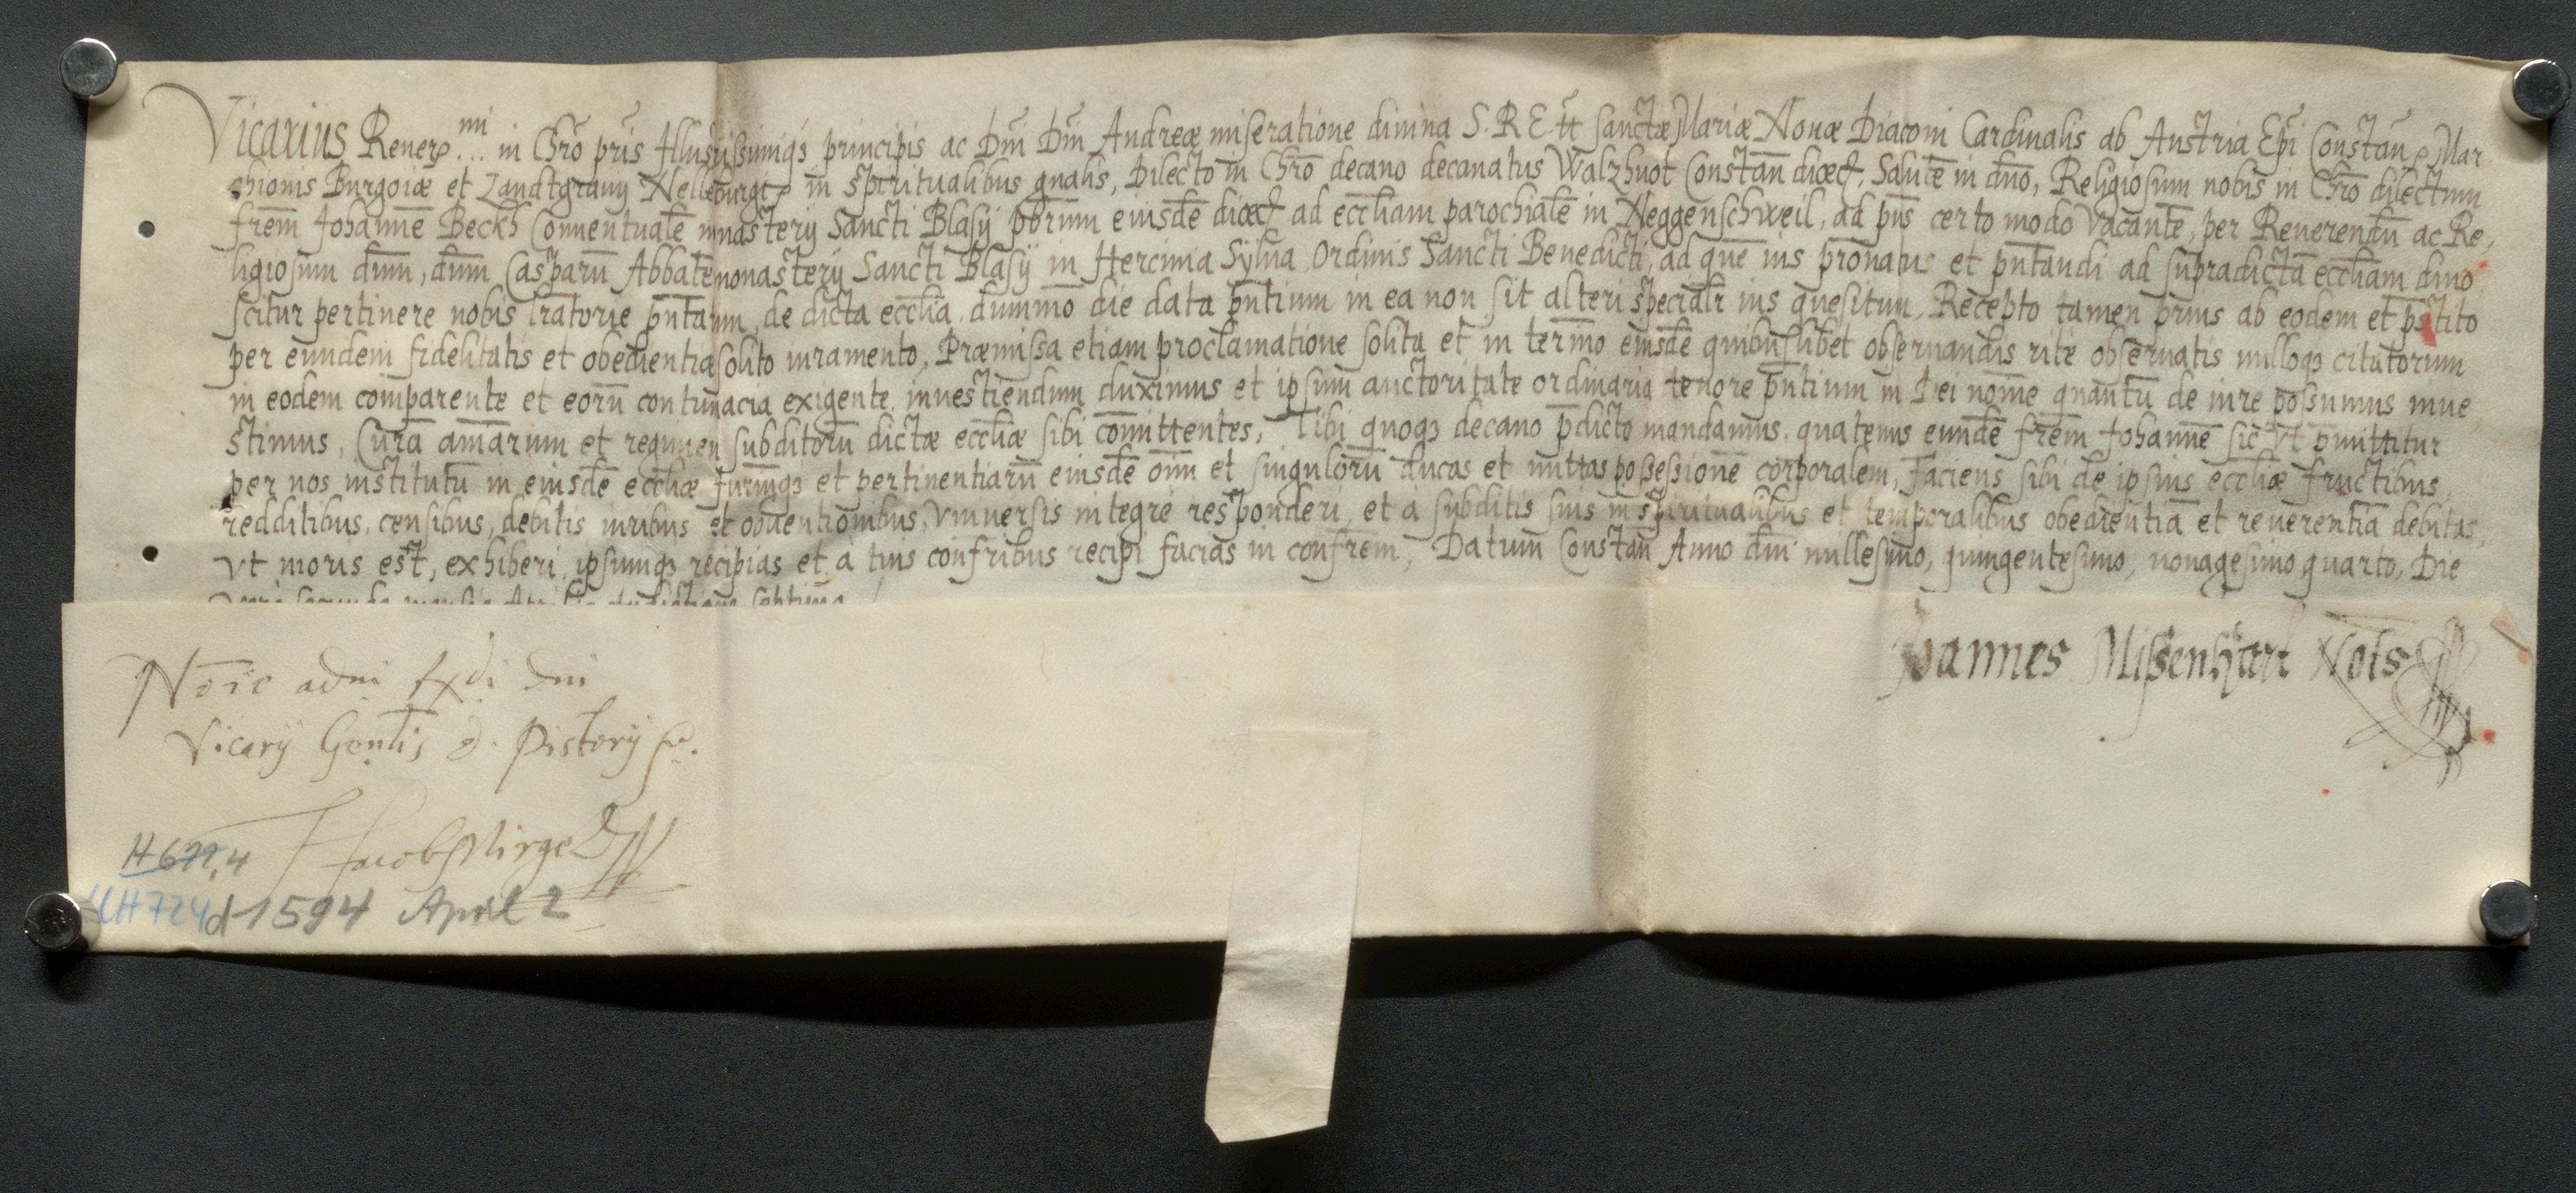 Vicarius Reuerᵐⁱ ... in Chr̄o pr̄is Illustrissimiqȝ principis ac Dn̄i Dn̄i Andreæ miseratione diuina S. R. E. tt Sanctæ Mariæ Nouæ Diaconi Cardinalis ab Austria Ep̄i Constan̄ Mar
chionis Burgoiæ et Landtgrauij Nellēburgi in spiritualibus gn̄alis, Dilecto in Chr̄o decano decanatus Walzhuot Constan̄ diœc. Salutē in dn̄o, Religiosum nobis in Chr̄o dilectum
frēm Johannē Beckh Conuentualē monasterij Sancti Blasij pbr̄um eiusdē diœc ad eccl̄iam parochialē in Neggenschweil, ad pn̄s certo modo vacantē, per Reuerendū ac Re,
ligiosum dn̄m, dn̄m Casparū Abbatē monasterij Sancti Blasij in Hercinia Sylua Ordinis Sancti Benedicti, ad quē ius pr̄onatus et pn̄tandi ad supradictā eccl̄iam dino
scitur pertinere nobis lr̄atorie pn̄tatum, de dicta eccl̄ia, dummō die data pn̄tium in ea non sit alteri specialr̄ ius quesitum, Recepto tamen prius ab eodem et pstito
per eundem fidelitatis et obedientiæ solito iuramento, Præmissa etiam proclamatione solita et in termīo eiusdē quibuslibet obseruandis rite obseruatis nulloqȝ citatorum
in eodem comparente et eorū contumacia exigente, inuestiendum duximus et ipsum auctoritate ordinaria tenore pn̄tium in Dei noīne quantū de iure possumus inue
stimus, Curā amārum et regimen subditorū dictæ eccl̄iæ sibi com̄ittentes, Tibi quoqȝ decano p̄dicto mandamus, quatenus eundē frēm Johannē sic vt pmittitur
per nos institutū in eiusdē eccl̄iæ Juriumqȝ et pertinentiarū eiusdē oīm et singulorū ducas et mittas possessionē corporalem, Faciens sibi de ipsius eccl̄iæ fructibus,
redditibus, censibus, debitis iuribus et obuentionibus, vniuersis integrè responderi, et à subditis suis in spiritualibus et temporalibus obedientiā et reuerentiā debitas,
vt moris est, exhiberi, ipsumqȝ recipias et à tuis confribus recipi facias in confrēm, Datum Constan̄ Anno dn̄i millesimo, quingentesimo, nonagesimo quarto, Die
vero secunda mensis Aprilis, Indictione septima
Joannes Missenhart Not̄s
Nōie adm̄ Rx̄di dn̄i
Vicarij Gen̄lis d. Pistorij
Jacob Mirgel
H 677,4
UH 724 d 1594 April 2